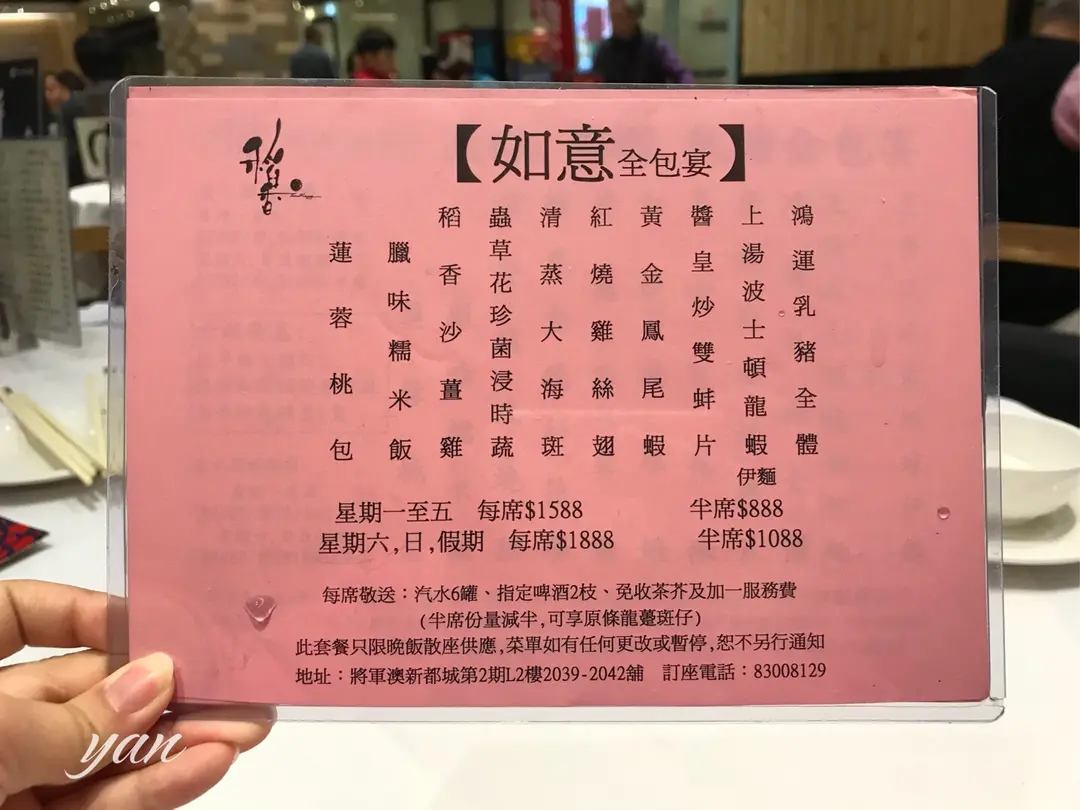 稻香
【如意全包宴】
鴻運乳豬全體
上湯波士頓龍蝦伊麵
醬皇炒雙蚌片
黃金鳳尾蝦
紅燒雞絲翅
清蒸大海斑
蟲草花珍菌浸時蔬
稻香沙薑雞
臘味糯米飯
蓮蓉桃包
星期一至五 每席$1588 半席$888
星期六,日,假期 每席$1888 半席$1088
每席敬送：汽水6罐、指定啤酒2枝、免收茶芥及加一服務費
(半席份量減半,可享原條龍躉斑仔)
此套餐只限晚飯散座供應,菜單如有任何更改或暫停,恕不另行通知
地址：將軍澳新都城第2期L2樓2039-2042舖 訂座電話：83008129
yan